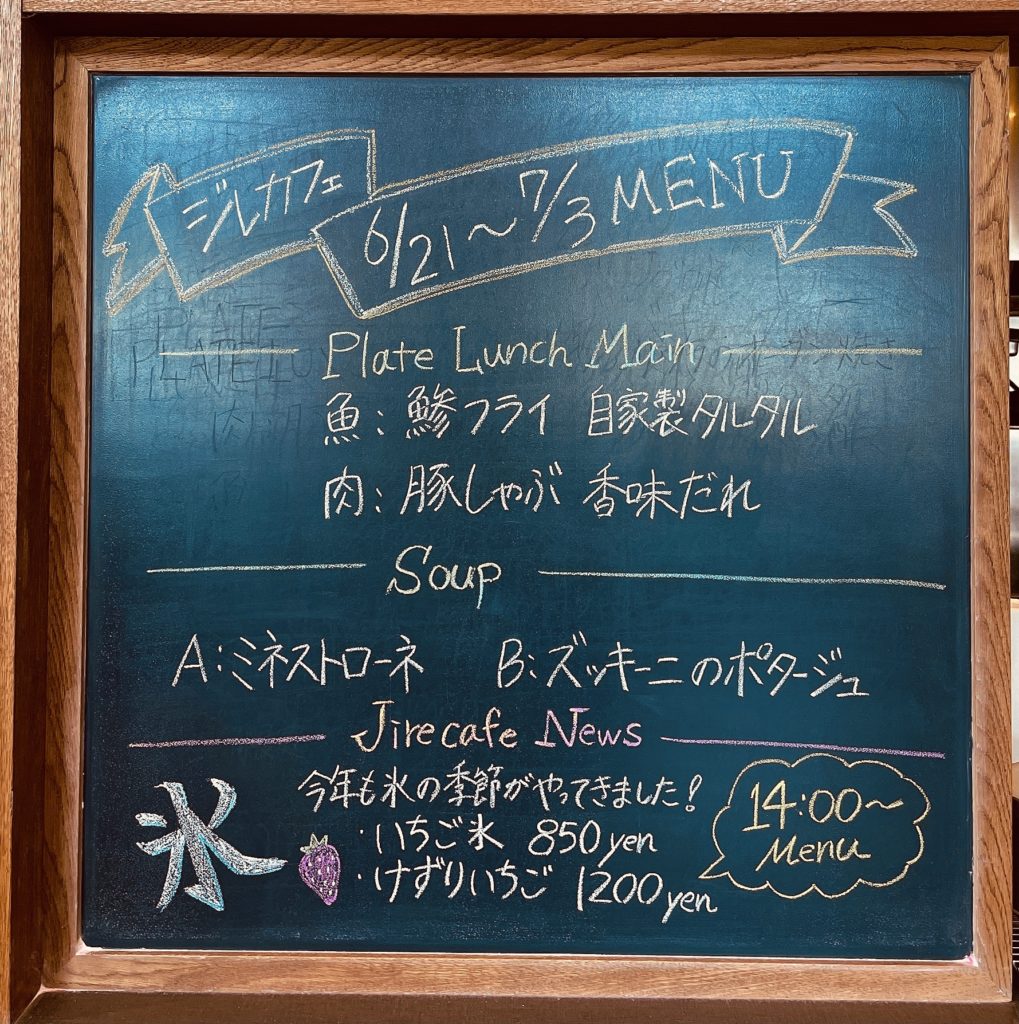 ジルカフェ 6/21～7/3 MENU
Plate Lunch Main
魚：鯵フライ 自家製タルタル
肉：豚しゃぶ 香味だれ
Soup
A：ミネストローネ B：ズッキーニのポタージュ
Jire cafe News
氷
今年も氷の季節がやってきました！
・いちご氷 850yen
・けずりいちご 1200yen
14:00～
Menu